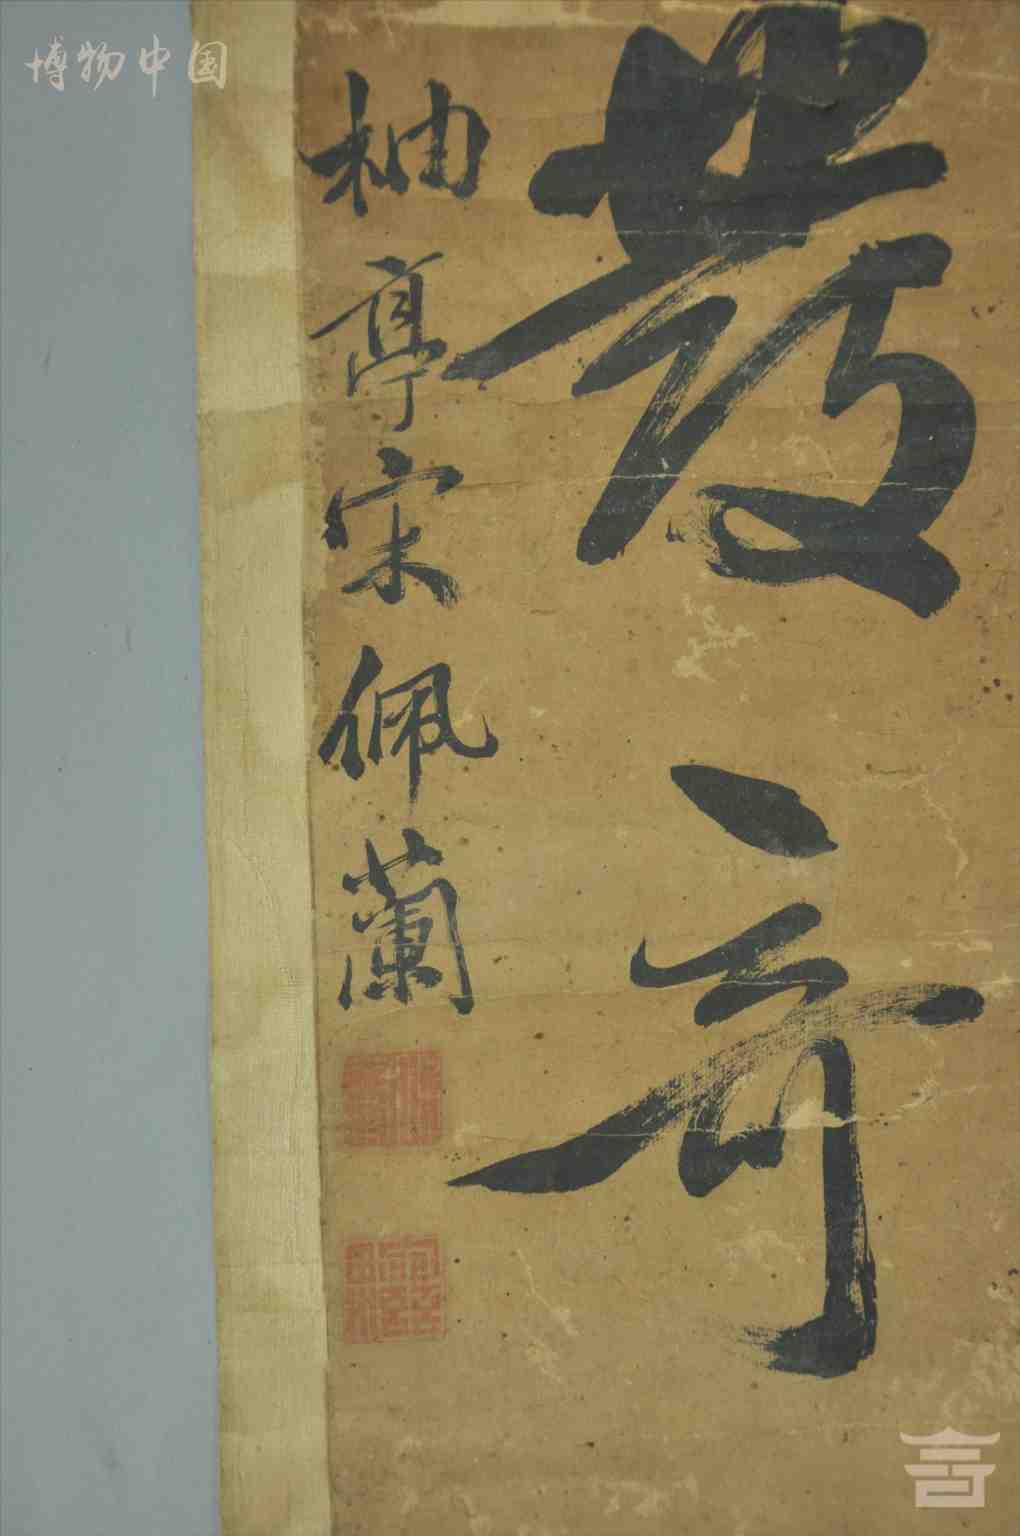 博物中国
发奇
柚亭宋佩蘭